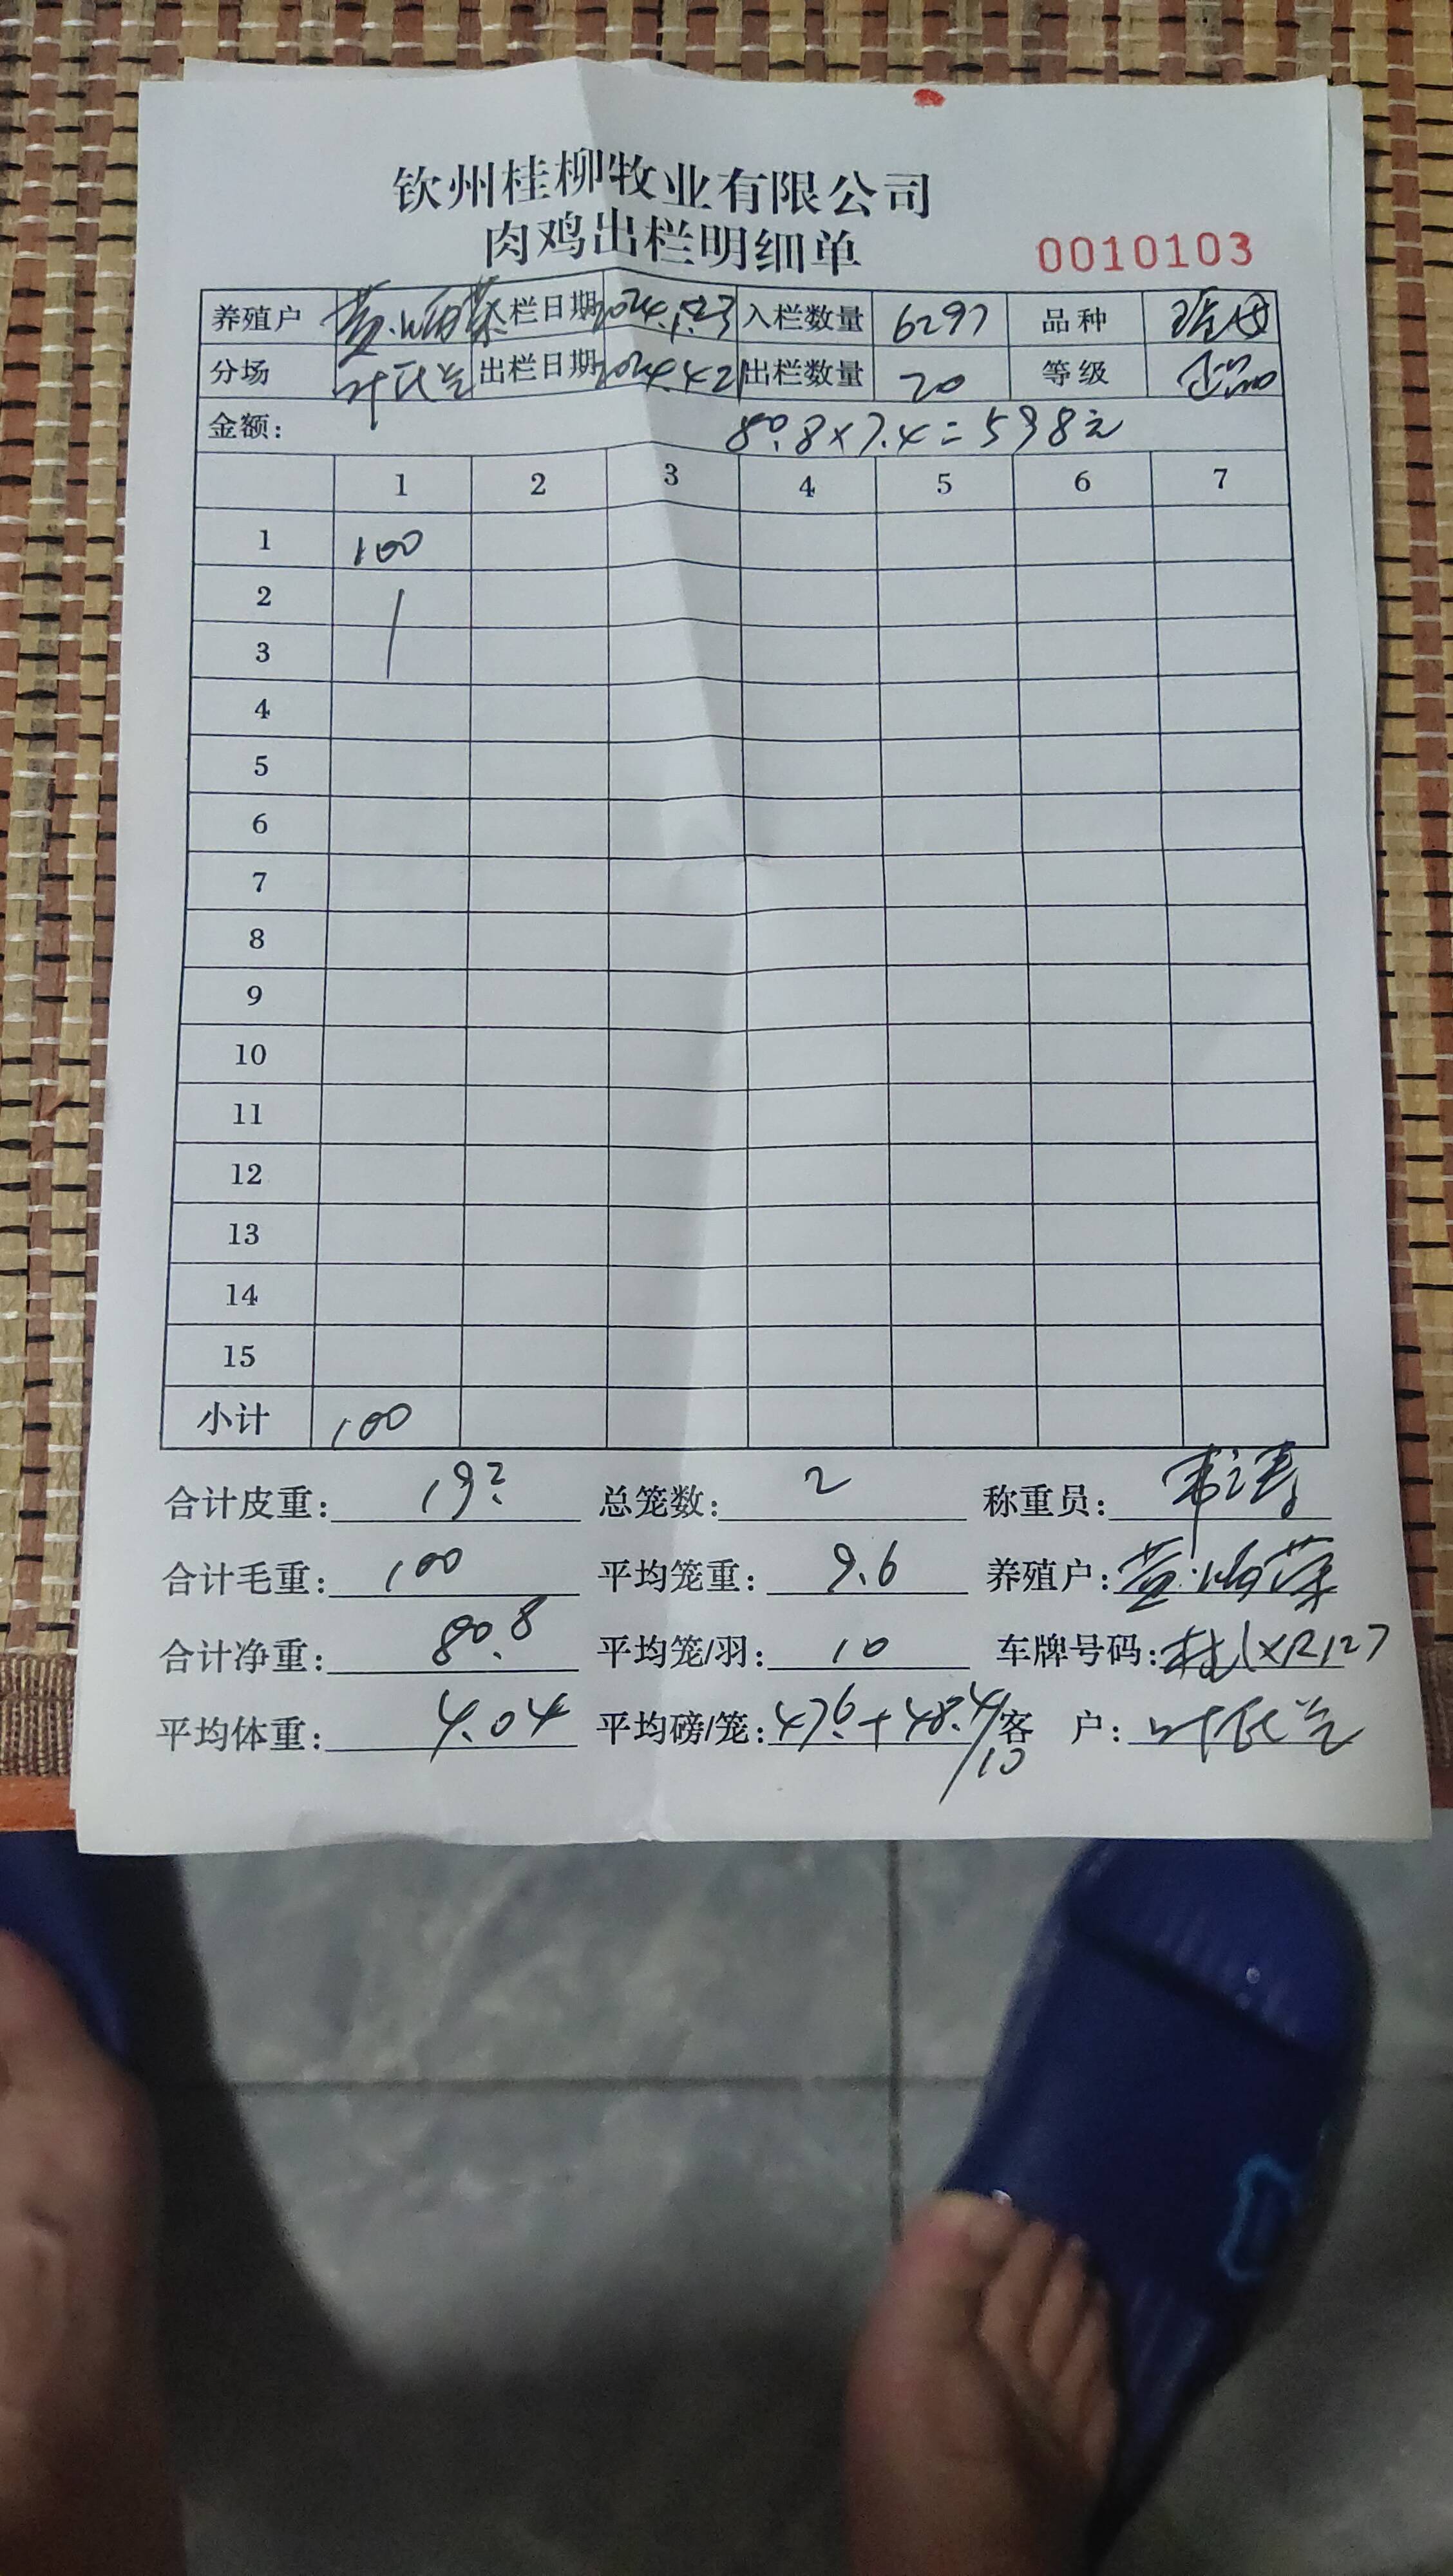 钦州桂柳牧业有限公司
肉鸡出栏明细单
0010103
养殖户 栏日期 2024.1.23 入栏数量 6297 品种
分场 叶氏兰 出栏日期 2024.4.21 出栏数量 20 等级 正品
金额: 80.8×7.4=598元
1 2 3 4 5 6 7
1 100
2
3
4
5
6
7
8
9
10
11
12
13
14
15
小计 100
合计皮重: 19.2 总笼数: 2 称重员: 韦涛
合计毛重: 100 平均笼重: 9.6 养殖户:
合计净重: 80.8 平均笼/羽: 10 车牌号码: XR127
平均体重: 4.04 平均磅/笼: 47.6+48.4/10 客 户: 叶氏兰